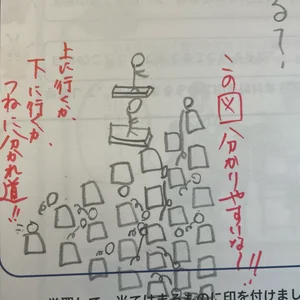 る？
この図分かりやすいな～!!
上に行くか、
下に行くか、
つねに分かれ道!!
学習して、当てはまるものに印を付けまし